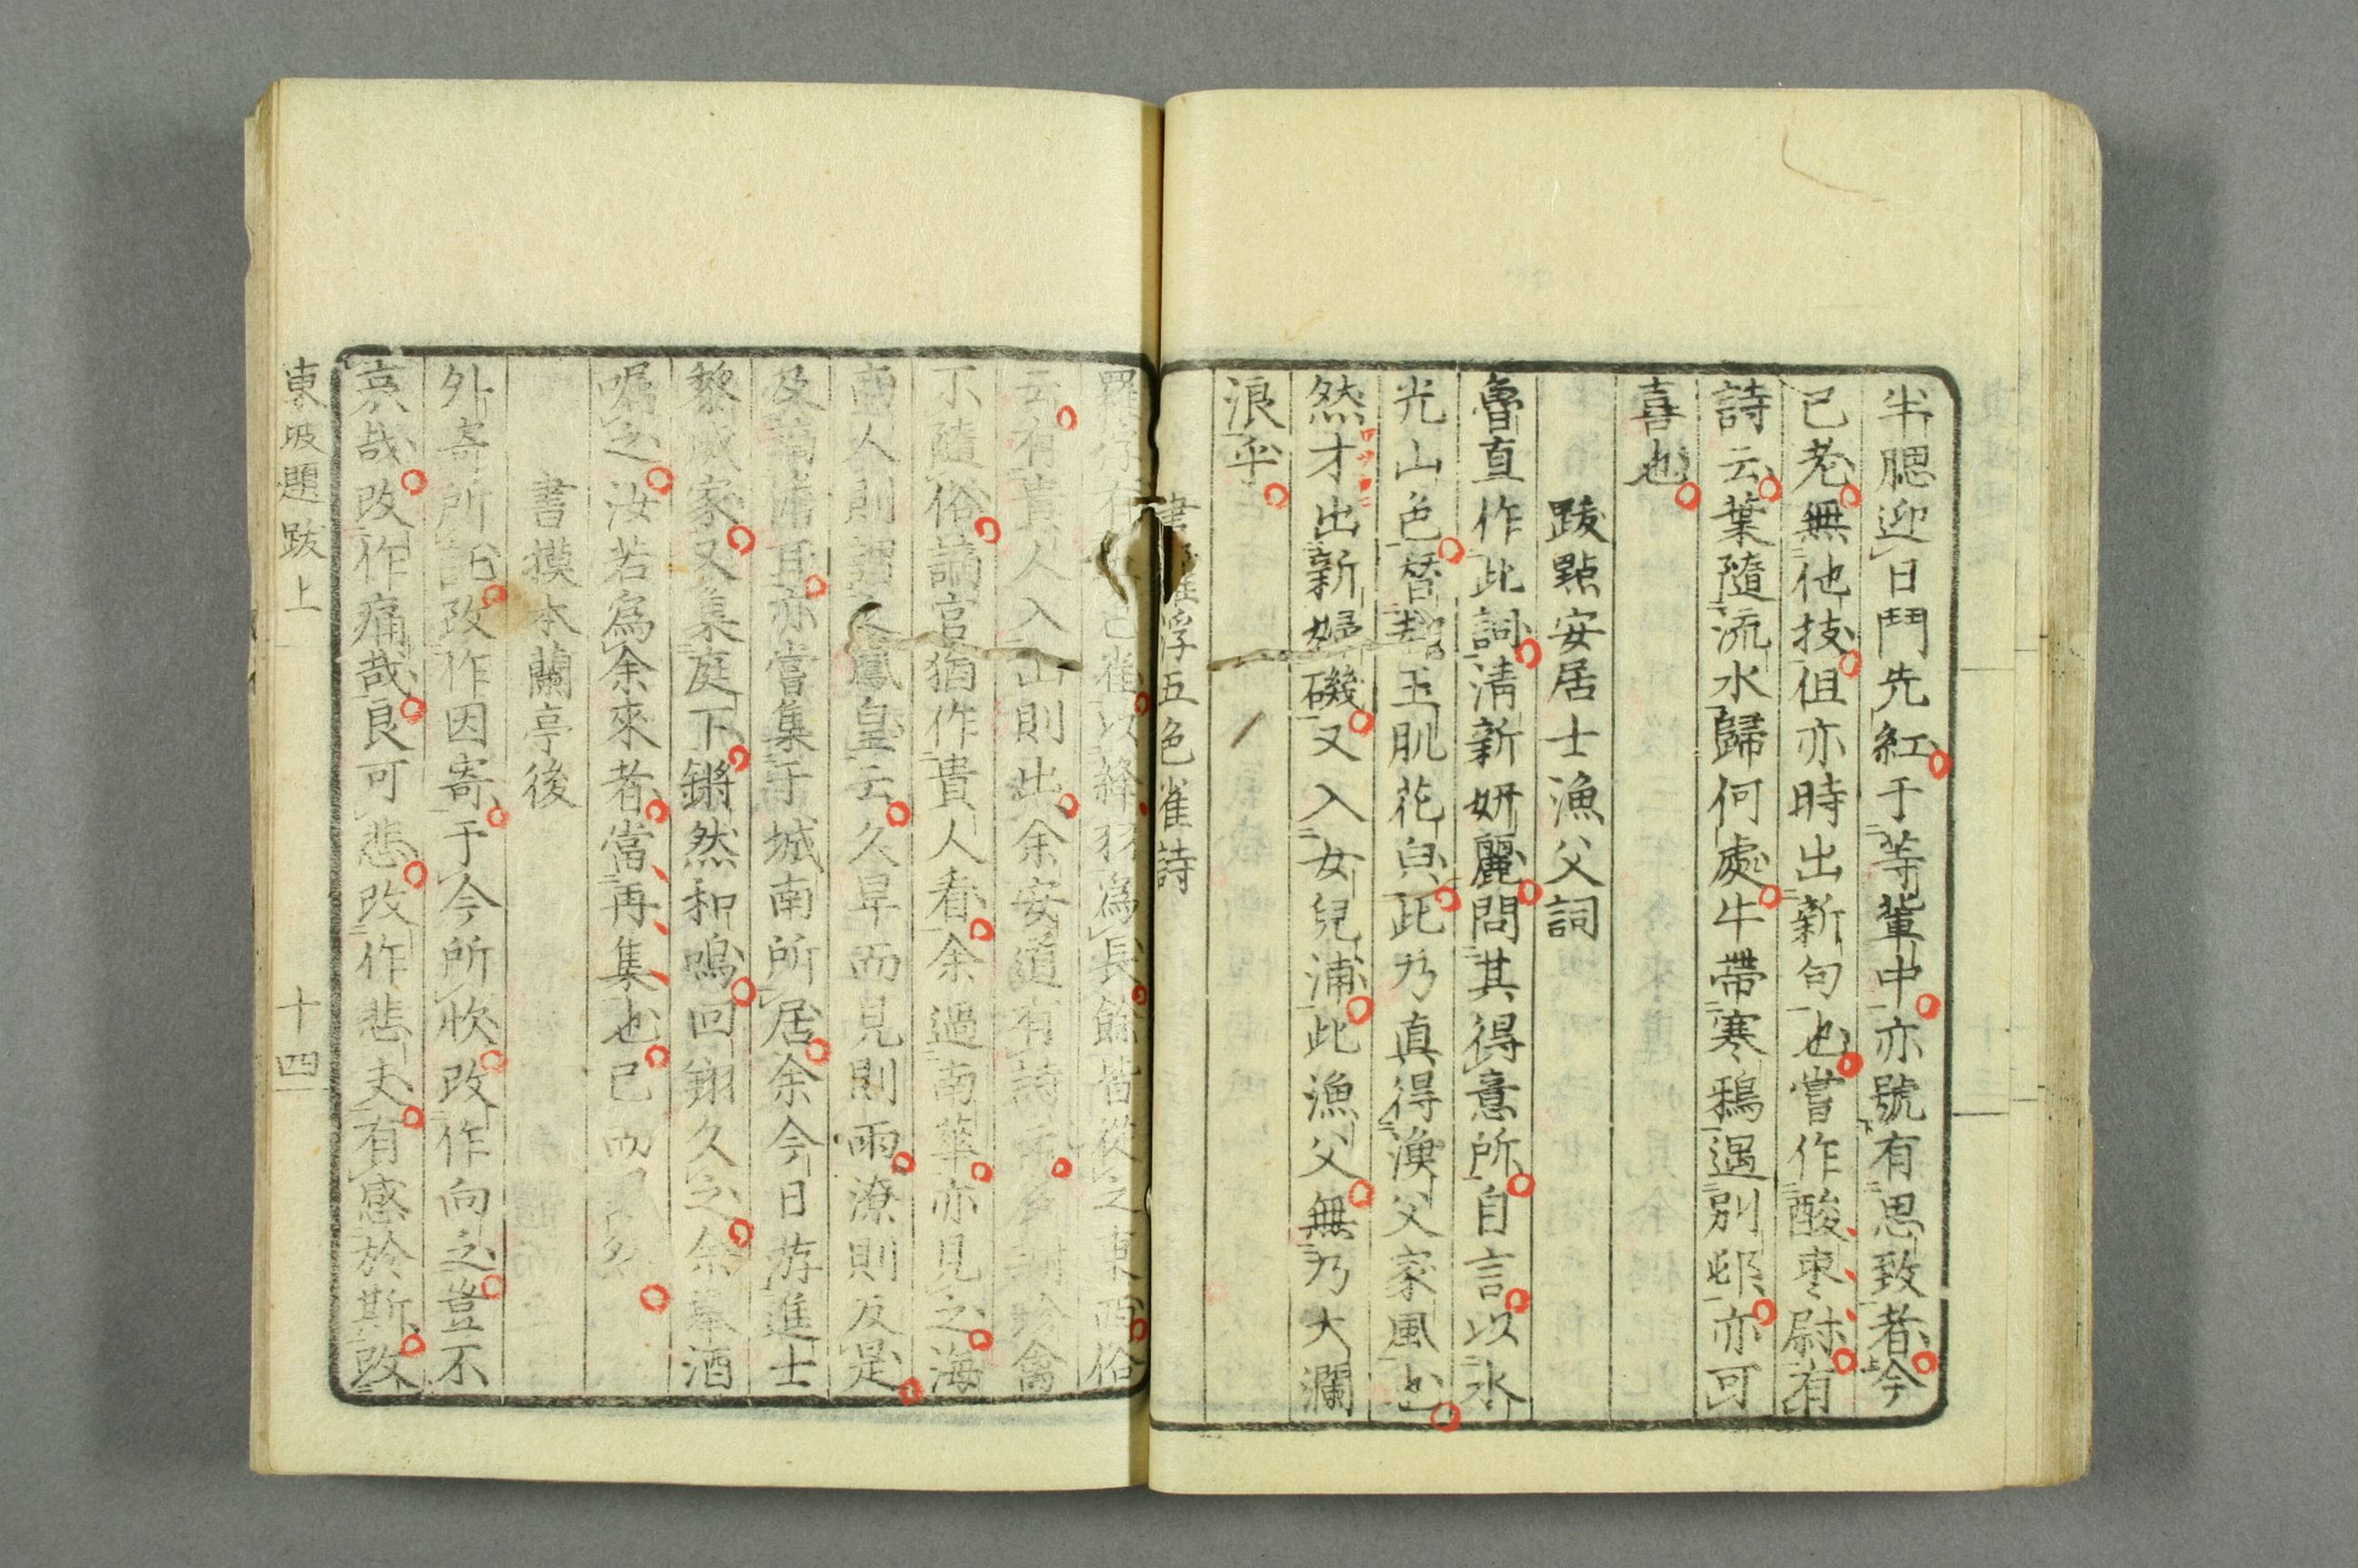 半腮迎日鬥先紅于等輩中亦號有思致者今
已老無他技但亦時出新句也嘗作酸棗尉有
詩云葉隨流水歸何處牛帶寒鴉過別邨亦可
喜也
跋黔安居士漁父詞
魯直作此詞清新妍麗問其得意所自言以水
光山色替却玉肌花皃此乃真得漁父家風也
然才出新婦磯又入女兒浦此漁父無乃大瀾
浪乎
書羅浮五色雀詩
羅浮有五色雀以絳羽為長餘皆從之東西俗
云有貴人入山則出余安道有詩云多謝珍禽
不隨俗謫官猶作貴人看余過南華亦見之海
南人則謂之鳳皇云久旱而見則雨潦則反是
及謫儋耳亦嘗集于城南所居余今日游進士
黎威家又集庭下鏘然和鳴回翔久之余舉酒
囑之汝若為余來者當再集也已而
書摸本蘭亭後
外寄所託改作因寄于今所欣改作向之豈不
哀哉改作痛哉良可悲改作悲夫有感於斯改
東坡題跋上
十四